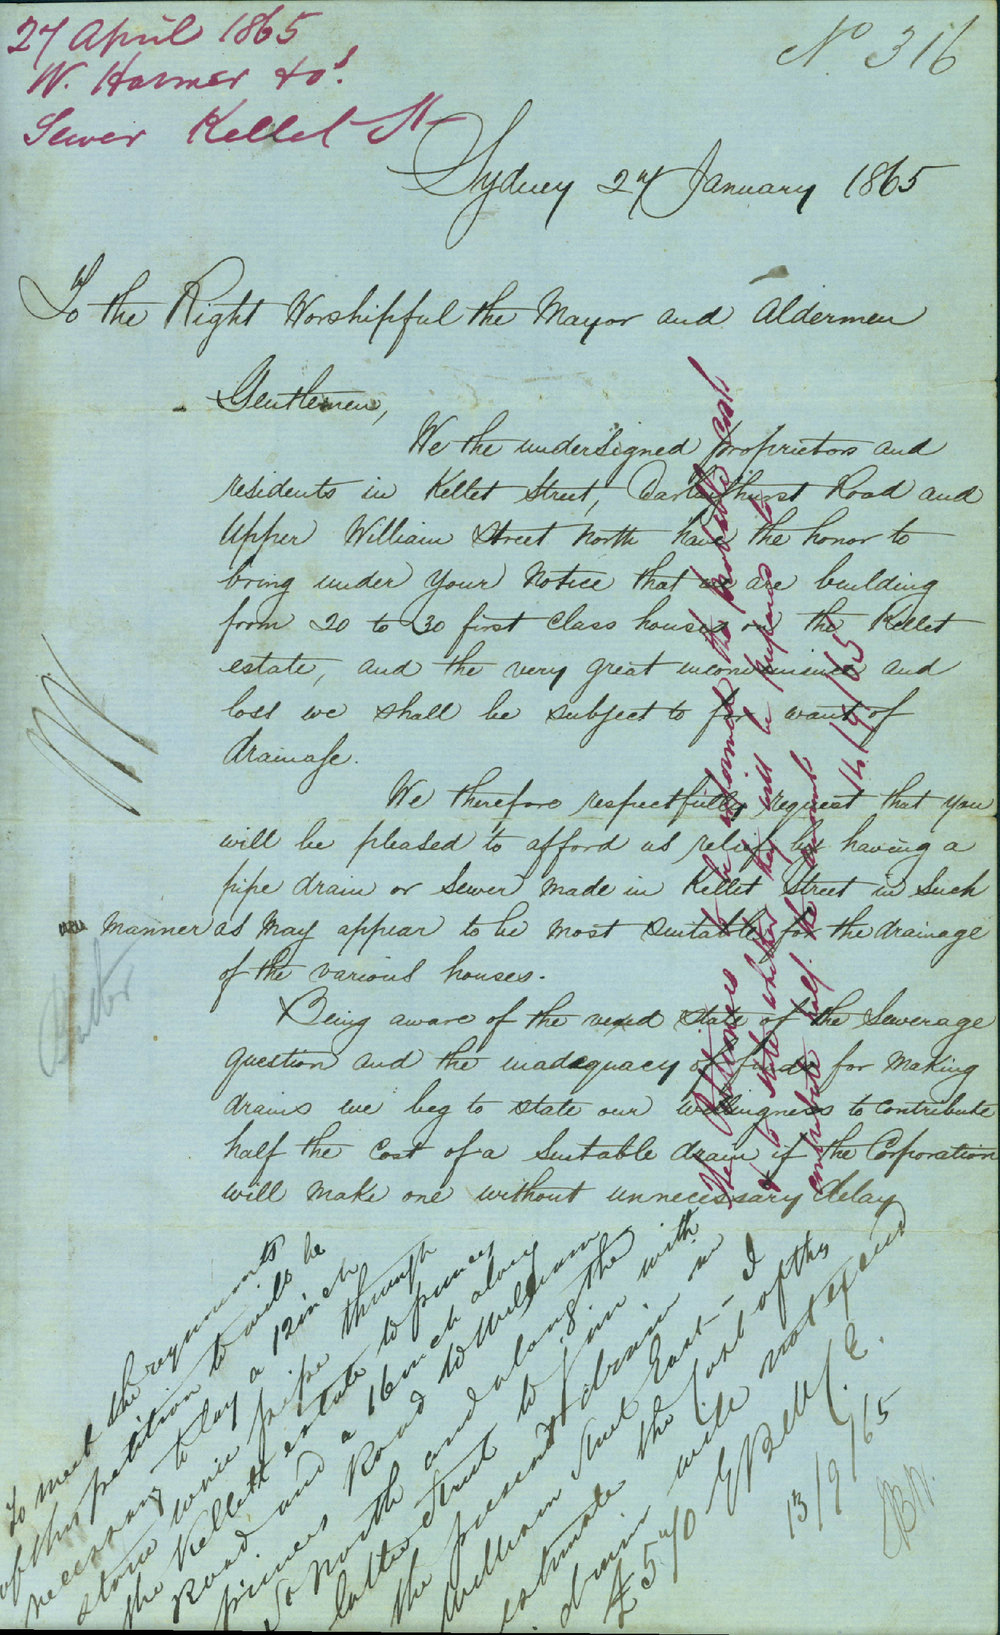 27 April 1865
W. Harmer & os.
Sewer Kellet St
No 316
Sydney 27 January 1865
To the Right Worshipful the Mayor and Aldermen
Gentlemen,
We the undersigned proprietors and
residents in Kellet Street, Darlinghurst Road and
Upper William Street North have the honor to
bring under your notice that we are building
from 20 to 30 first class houses on the Kellet
estate, and the very great inconvenience and
loss we shall be subject to for want of
drainage.
We therefore respectfully request that you
will be pleased to afford us relief by having a
pipe drain or sewer made in Kellet Street in such
manner as may appear to be most suitable for the drainage
of the various houses.
Being aware of the vexed state of the Sewerage
question and the inadequacy of funds for making
drains we beg to state our willingness to contribute
half the cost of a suitable drain if the Corporation
will make one without unnecessary delay
The Petitioners to be informed the probable cost
& to state whether they will be prepared to
contribute half the amount 14/9/65
To meet the requirements
of this petition it will be
necessary to lay a 12 inch
stone ware pipe through
the Kellett estate to princes
Road and a 16 inch along
princes Road to William
St North and along the
latter Street to join with
the present drain in
William Street East - I
estimate the Cost of this
drain will not exceed
£570 E Bell C.E.
13/9/65